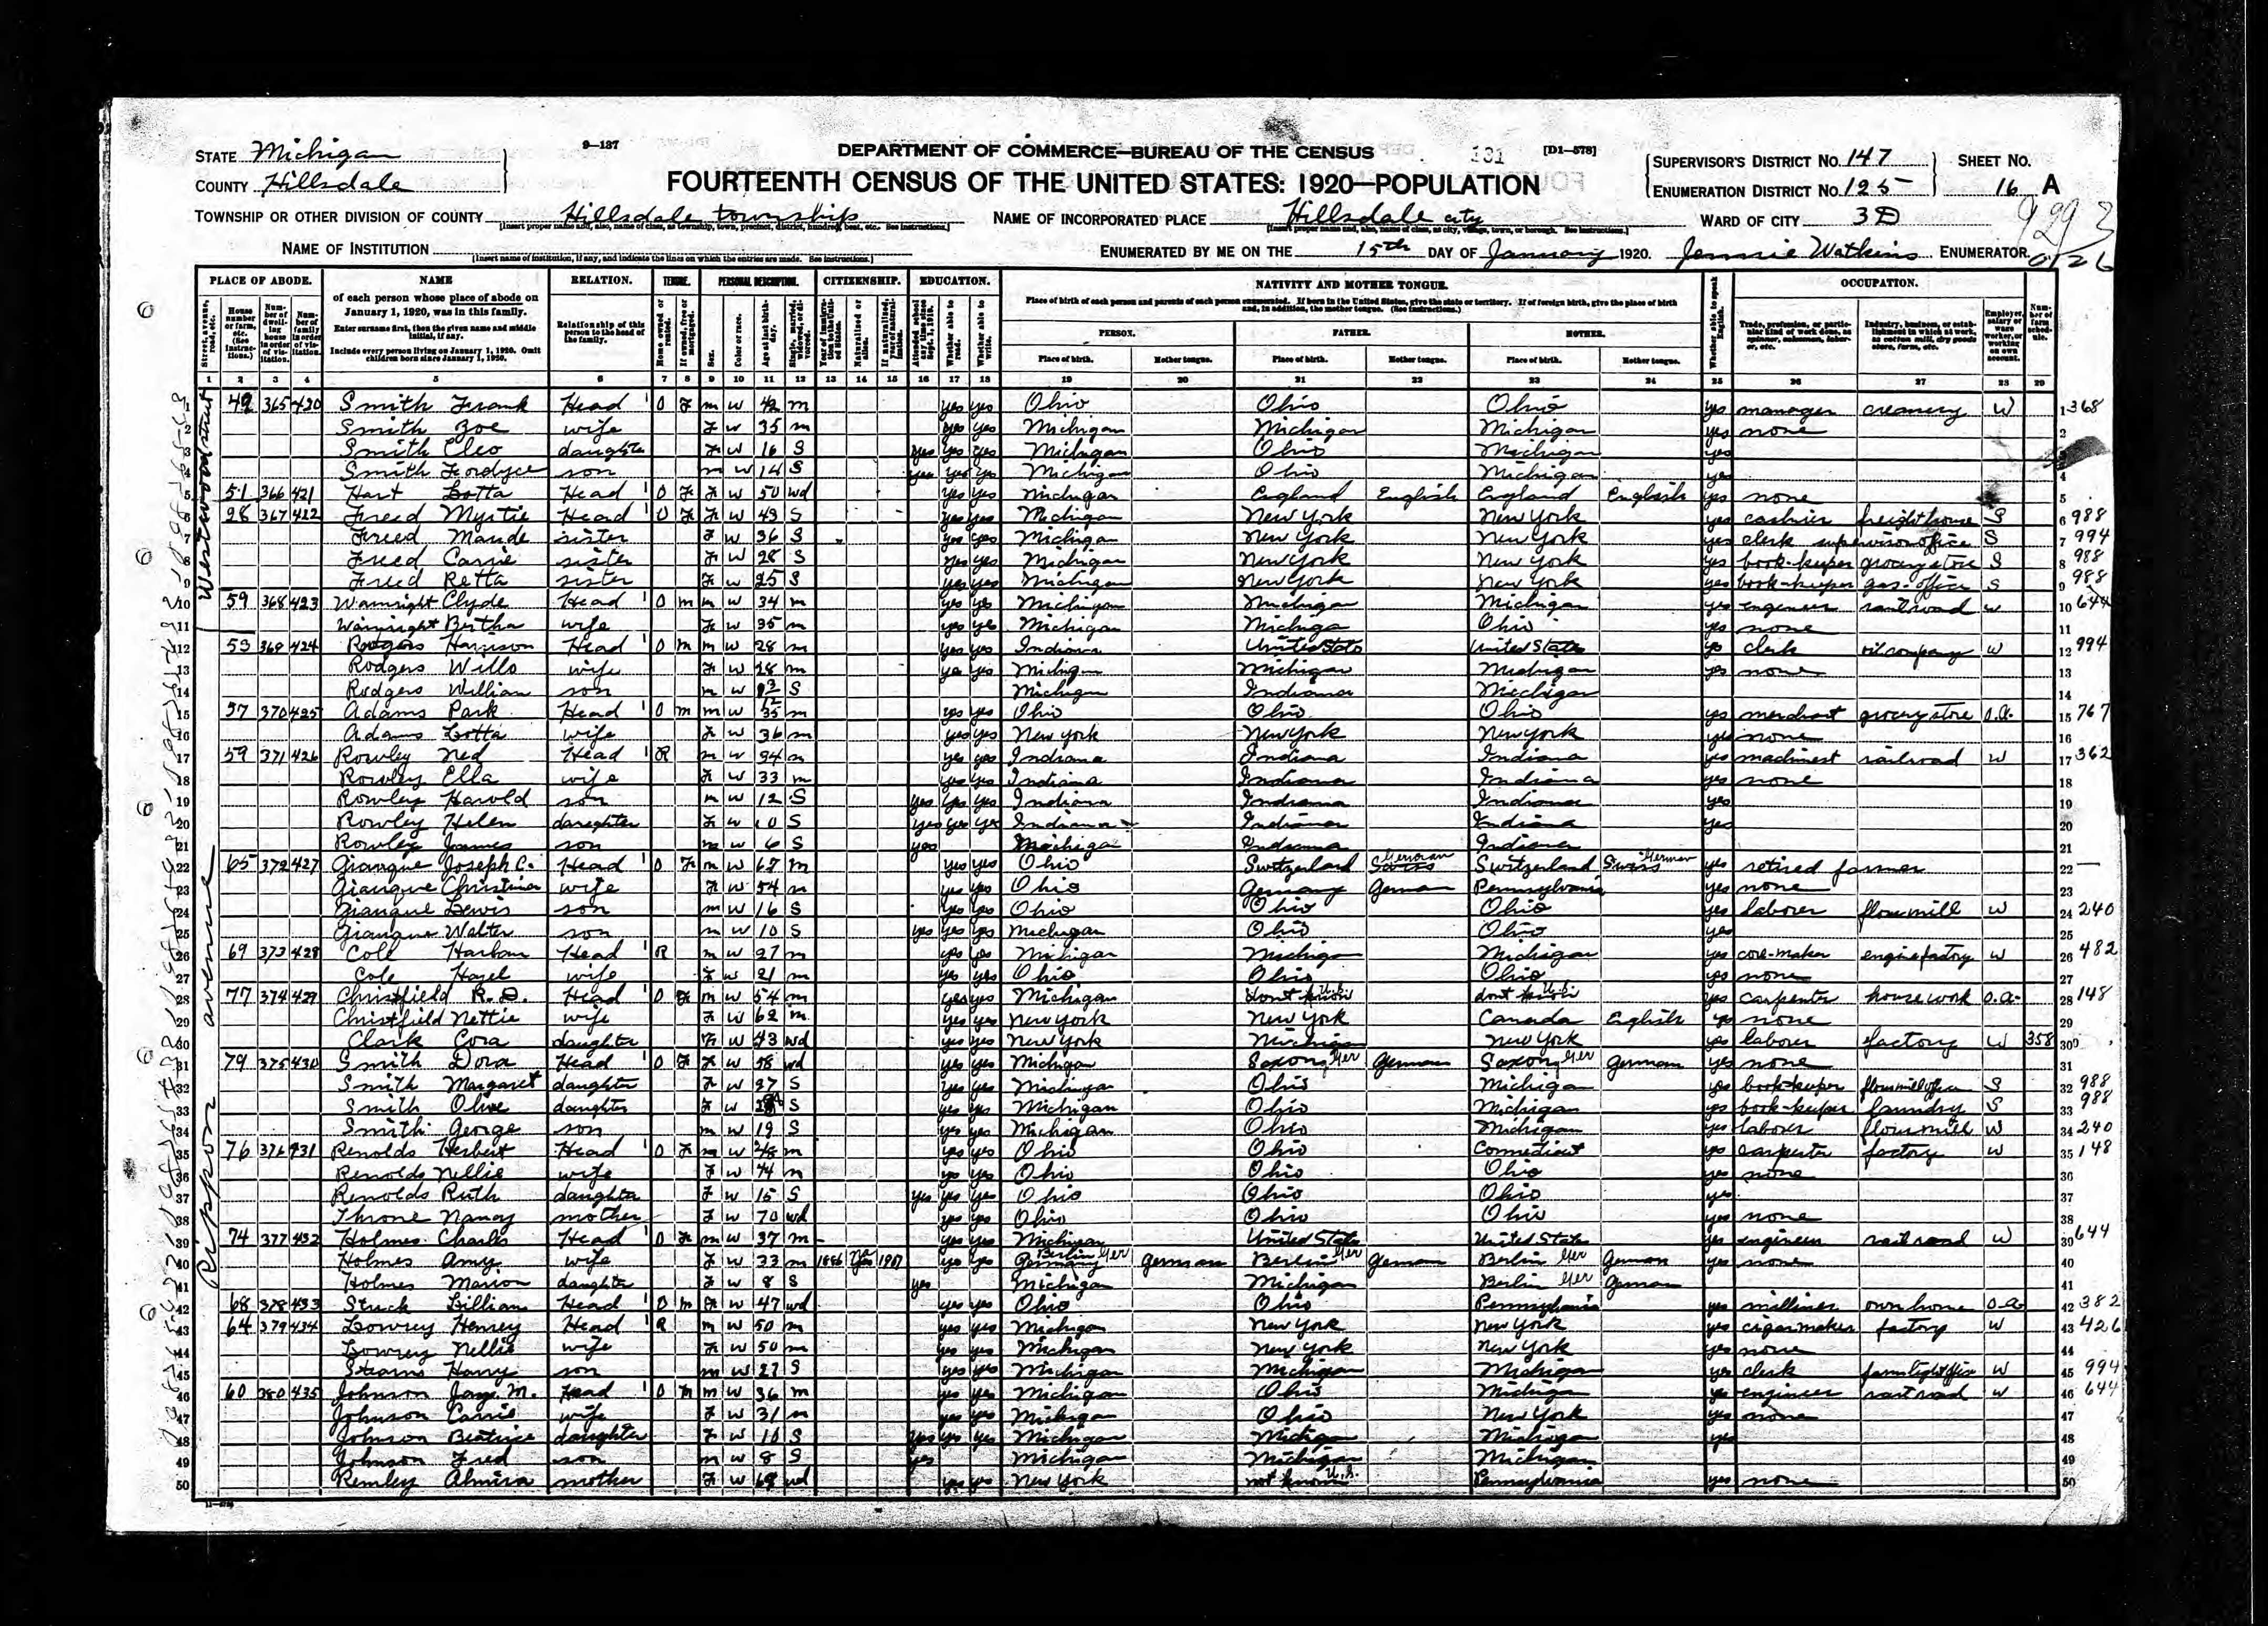 STATE Michigan
COUNTY Hillsdale
9—137
DEPARTMENT OF COMMERCE—BUREAU OF THE CENSUS
131
[D1—578]
FOURTEENTH CENSUS OF THE UNITED STATES: 1920—POPULATION
SUPERVISOR'S DISTRICT No. 147
ENUMERATION DISTRICT No. 125
SHEET No.
16 A
TOWNSHIP OR OTHER DIVISION OF COUNTY Hillsdale township
NAME OF INCORPORATED PLACE Hillsdale city
WARD OF CITY 3D
NAME OF INSTITUTION
[Insert name of institution, if any, and indicate the lines on which the entries are made. See instructions.]
ENUMERATED BY ME ON THE 15th DAY OF January 1920. Jennie Watkins ENUMERATOR.
PLACE OF ABODE. NAME RELATION. TENURE. PERSONAL DESCRIPTION. CITIZENSHIP. EDUCATION. NATIVITY AND MOTHER TONGUE. OCCUPATION.
of each person whose place of abode on January 1, 1920, was in this family.
Enter surname first, then the given name and middle initial, if any.
Include every person living on January 1, 1920. Omit children born since January 1, 1920.
Relationship of this person to the head of the family.
Place of birth of each person and parents of each person enumerated. If born in the United States, give the state or territory. If of foreign birth, give the place of birth and, in addition, the mother tongue. (See instructions.)
PERSON. FATHER. MOTHER.
Place of birth. Mother tongue. Place of birth. Mother tongue. Place of birth. Mother tongue.
1 2 3 4 5 6 7 8 9 10 11 12 13 14 15 16 17 18 19 20 21 22 23 24 25 26 27 28 29
Westwood street
1 49 365 420 Smith Frank Head O F m w 42 m yes yes Ohio Ohio Ohio yes manager creamery W 1 368
2 Smith Zoe wife F w 35 m yes yes Michigan Michigan Michigan yes none 2
3 Smith Cleo daughter F w 16 S yes yes yes Michigan Ohio Michigan yes
4 Smith Fordyce son m w 14 S yes yes yes Michigan Ohio Michigan yes 4
5 51 366 421 Hart Lotta Head O F F w 50 wd yes yes Michigan England English England English yes none 5
6 28 367 422 Freed Myrtie Head O F F w 43 S yes yes Michigan New York New York yes cashier freight house S 6 988
7 Freed Maude sister F w 36 S yes yes Michigan New York New York yes clerk supervisor office S 7 994
8 Freed Carrie sister F w 28 S yes yes Michigan New York New York yes book-keeper grocery store S 8 988
9 Freed Retta sister F w 25 S yes yes Michigan New York New York yes book-keeper gas-office S 9 988
10 59 368 423 Wainright Clyde Head O m m w 34 m yes yes Michigan Michigan Michigan yes engineer railroad w 10 644
11 Wainright Bertha wife F w 35 m yes yes Michigan Michiga Ohio yes none 11
12 53 369 424 Rodgers Harrison Head O m m w 28 m yes yes Indiana United States United States yes clerk oil company w 12 994
13 Rodgers Willo wife F w 28 m yes yes Michigan Michigan Michigan yes none 13
14 Rodgers William son m w S Michigan Indiana Michigan 14
15 57 370 425 Adams Park Head O m m w 35 m yes yes Ohio Ohio Ohio yes merchant grocery store O.A. 15 767
16 Adams Lotta wife F w 36 m yes yes New York New York New York yes none 16
17 59 371 426 Rowley Ned Head R m w 34 m yes yes Indiana Indiana Indiana yes machinest railroad w 17 362
18 Rowley Ella wife F w 33 m yes yes Indiana Indiana Indiana yes none 18
19 Rowley Harold son m w 12 S yes yes yes Indiana Indiana Indiana yes 19
20 Rowley Helen daughter F w 10 S yes yes yes Indiana Indiana Indiana yes 20
21 Rowley James son m w 6 S yes Michigan Indiana Indiana 21
Rippon avenue
22 65 372 427 Gianque Joseph C. Head O F m w 67 m yes yes Ohio Switzerland German Swiss Switzerland German Swiss yes retired farmer 22
23 Gianque Christina wife F w 54 m yes yes Ohio Germany German Pennsylvania yes none 23
24 Gianque Lewis son m w 16 S yes yes Ohio Ohio Ohio yes laborer flour mill w 24 240
25 Gianque Walter son m w 10 S yes yes yes Michigan Ohio Ohio yes 25
26 69 373 428 Cole Head R m w 27 m yes yes Michigan Michigan Michigan yes core-maker engine factory w 26 482
27 Cole Hazel wife F w 21 m yes yes Ohio Ohio Ohio yes none 27
28 77 374 429 Christfield R.D. Head O F m w 54 m yes yes Michigan dont know U.S. dont know U.S. yes carpenter house work O.A. 28 148
29 Christfield Nettie wife F w 62 m yes yes New York New York Canada English yes none 29
30 Clark Cora daughter F w 43 wd yes yes New York Michigan New York yes laborer factory W 358 30
31 79 375 430 Smith Dora Head O F F w 58 wd yes yes Michigan Saxony Ger German Saxony Ger German yes none 31
32 Smith Margaret daughter F w 27 S yes yes Michigan Ohio Michigan yes book-keeper S 32 988
33 Smith Olive daughter F w S yes yes Michigan Ohio Michigan yes book-keeper laundry S 33 988
34 Smith George son m w 19 S yes yes Michigan Ohio Michigan yes laborer flour mill W 34 240
35 76 376 431 Renolds Herbert Head O F m w 48 m yes yes Ohio Ohio Connecticut yes carpenter factory w 35 148
36 Renolds Nellie wife F w 44 m yes yes Ohio Ohio Ohio yes none 36
37 Renolds Ruth daughter F w 15 S yes yes yes Ohio Ohio Ohio yes 37
38 Throne Nancy mother F w 70 wd yes yes Ohio Ohio Ohio yes none 38
39 74 377 432 Holmes Charles Head O F m w 37 m yes yes Michigan United States United States yes engineer railroad w 39 644
40 Holmes Amy wife F w 33 m 1886 Na yes yes Berlin Ger Germany German Berlin Ger German Berlin Ger German yes none 40
41 Holmes Marion daughter F w 8 S yes Michigan Michigan Berlin Ger German 41
42 68 378 433 Struck Lillian Head O m F w 47 wd yes yes Ohio Ohio Pennsylvania yes milliner own home O.A. 42 382
43 64 379 434 Lowrey Henrey Head R m w 50 m yes yes Michigan New York New York yes cigar maker factory W 43 426
44 Lowrey Nellie wife F w 50 m yes yes Michigan New York New York yes none 44
45 Stearns Harry son m w 27 S yes yes Michigan Michigan Michigan yes clerk W 45 994
46 60 380 435 Johnson Jay M. Head O m m w 36 m yes yes Michigan Ohio Michigan yes engineer railroad w 46 644
47 Johnson Carrie wife F w 31 m yes yes Michigan Ohio New York yes none 47
48 Johnson Beatrice daughter F w 10 S yes yes yes Michigan Michigan Michigan yes 48
49 Johnson Fred son m w 8 S yes Michigan Michigan Michigan 49
50 Remley Almira mother F w 68 wd yes yes New York not known U.S. Pennsylvania yes none 50